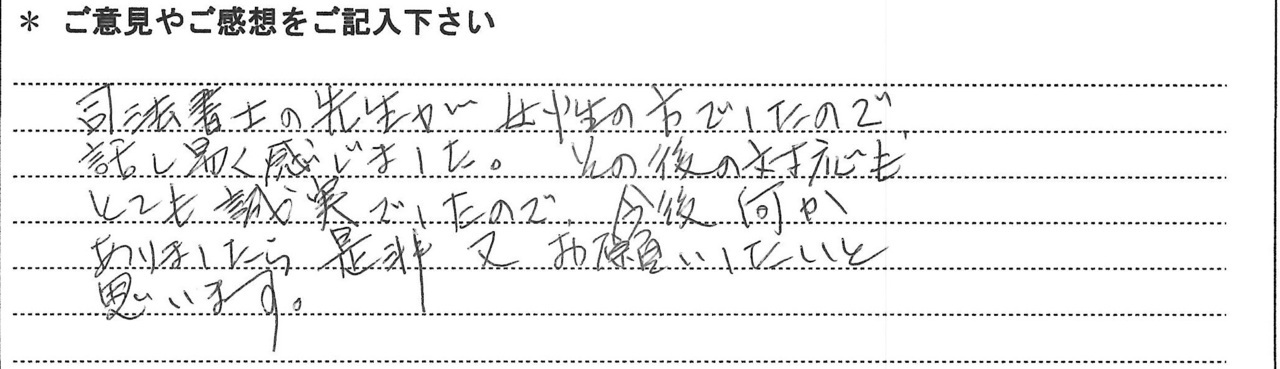 * ご意見やご感想をご記入下さい
司法書士の先生が女性の方でしたので、
話し易く感じました。その後の対応も
とても誠実でしたので、今後何か
ありましたら是非又お願いしたいと
思います。